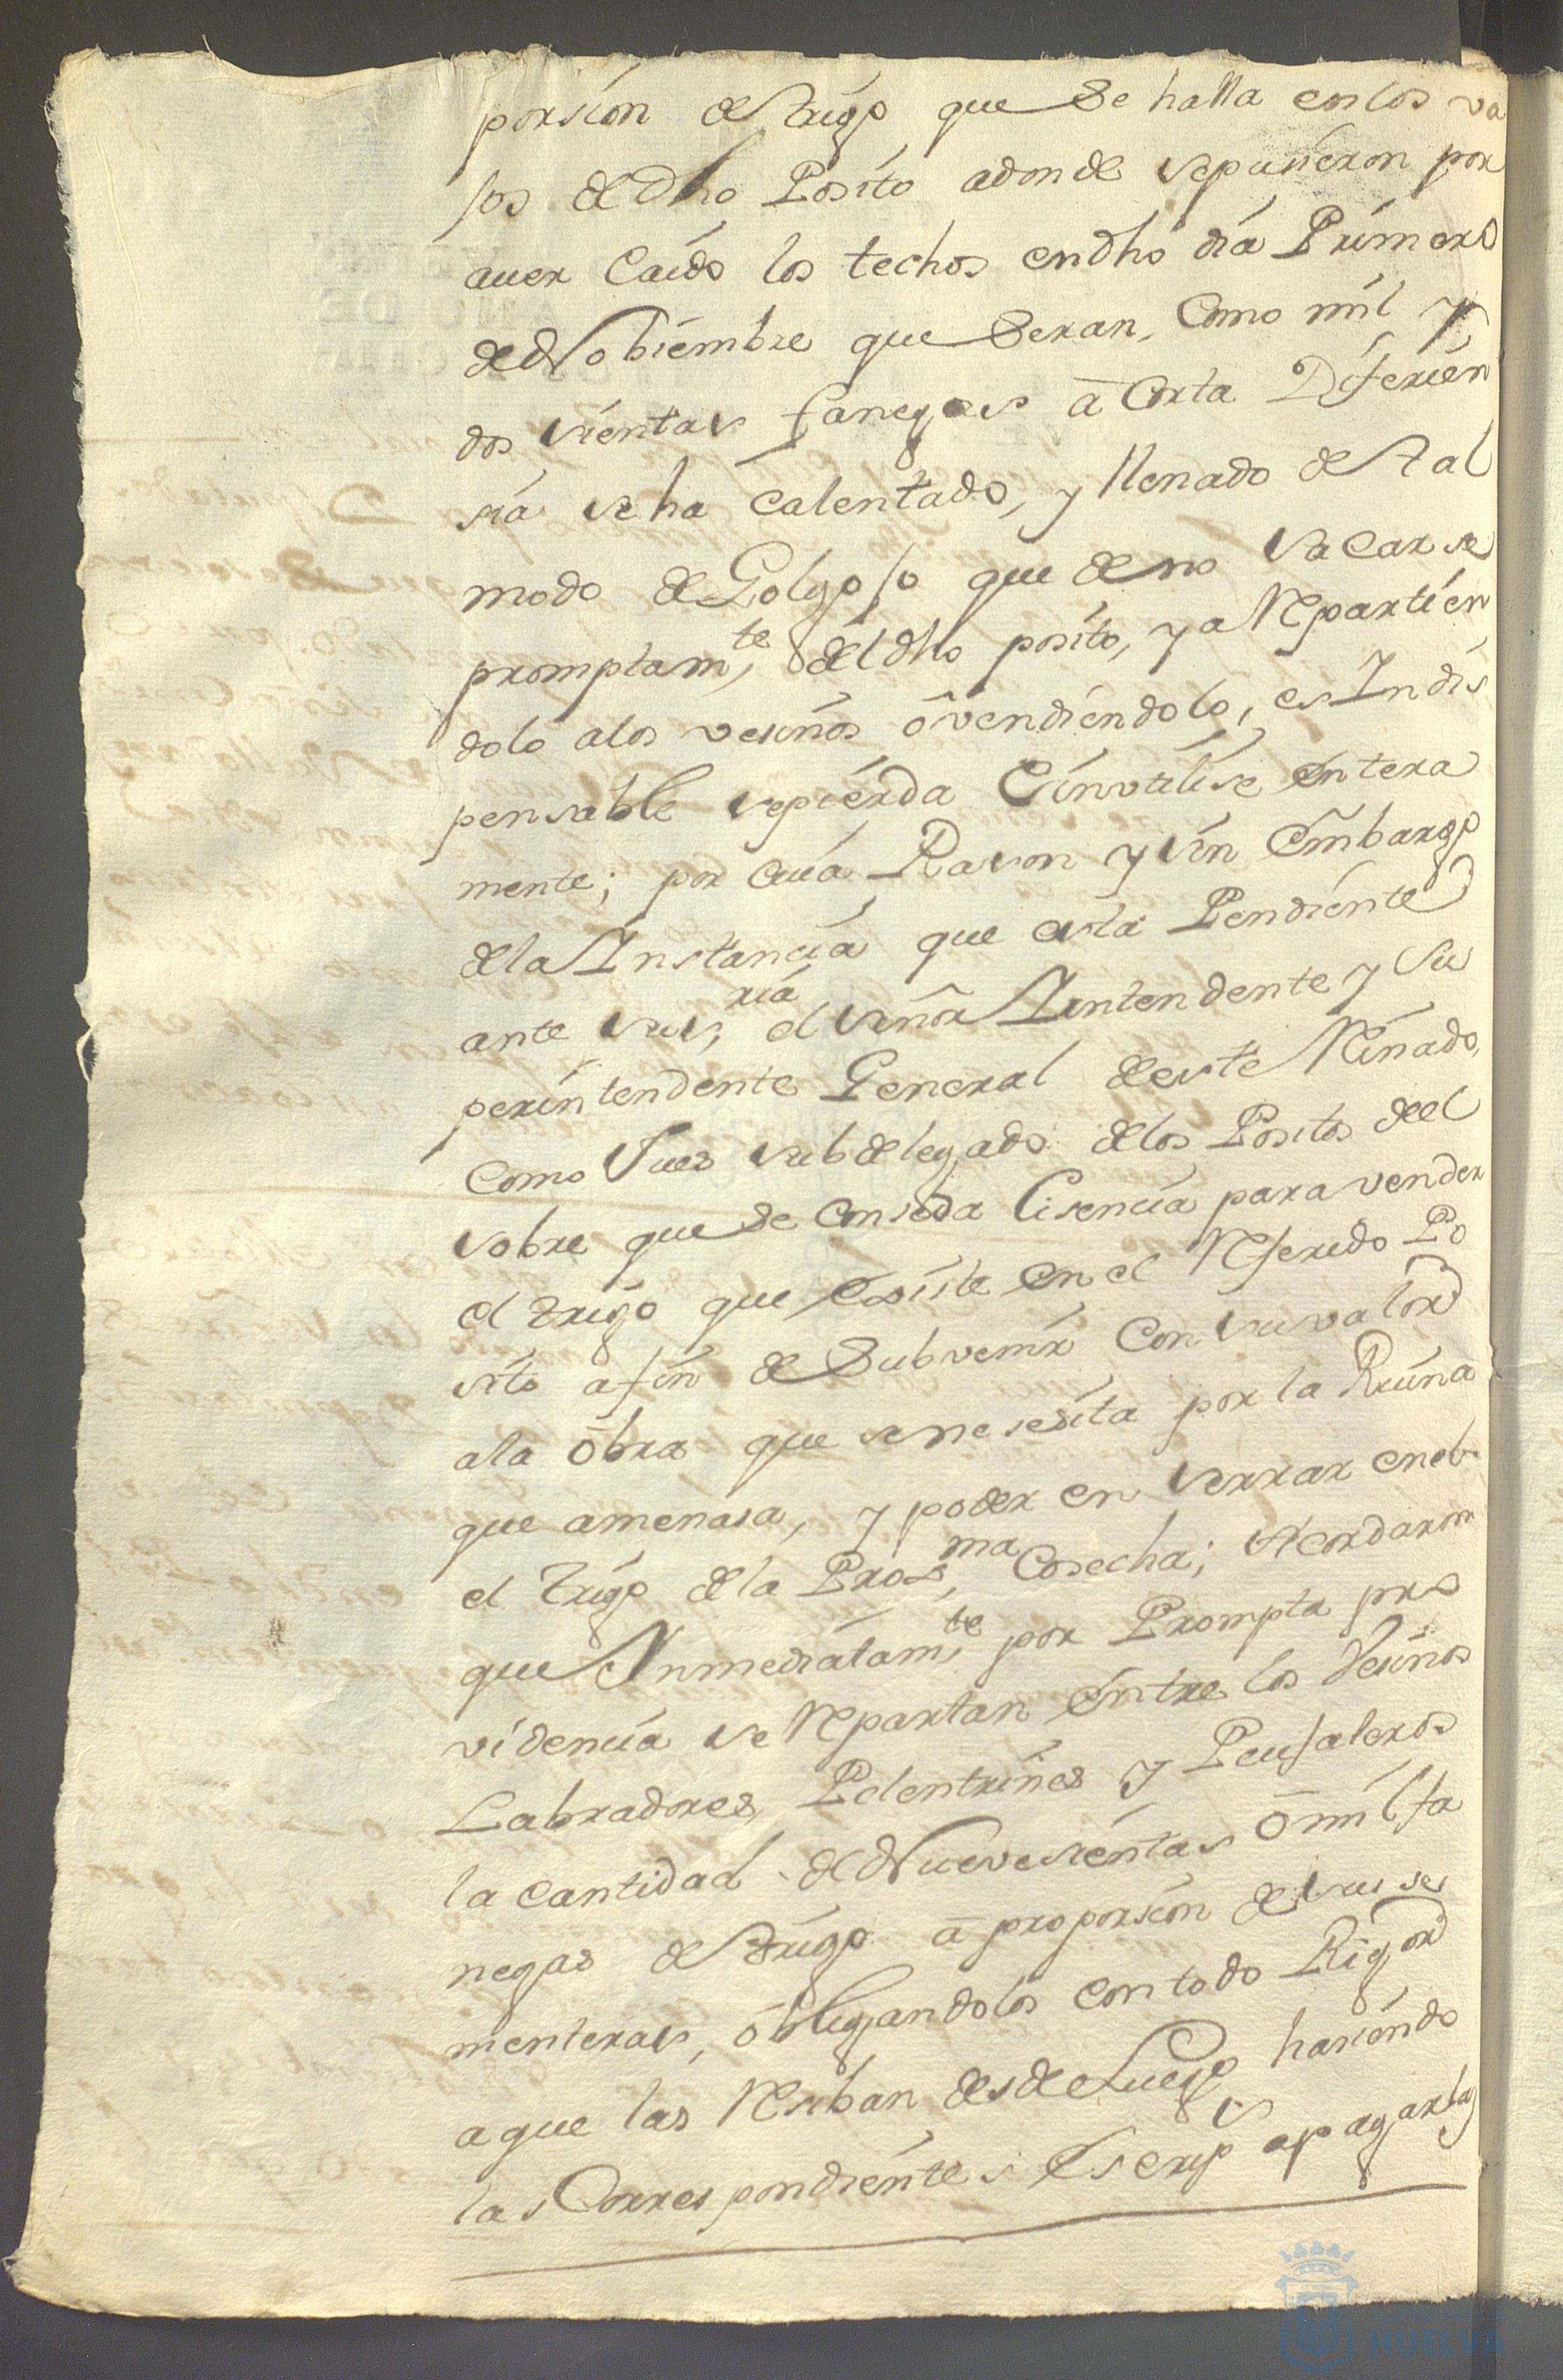 porsion de trigo que Se halla en los va
sos de dho Posito adonde sepusieron por
auer Caido los techos en dho dia Primero
de Nobiembre que Seran, Como mil y
dos sientas fanegas â Corta Diferien
sia se ha Calentado, y llenado de tal
modo de Golgojo que de no Sacarse
promptamte, del dho posito, y a Repartien
dolo alos vesinos ô vendiendolo, es Indis
pensable sepierda è inutilise entera
mente; por cuia Rason y sin embargo
dela Instancia que està Pendiente
ante suSria, el señor Intendente y Su
perintendente General de este Reinado,
Como Jues subdelegado delos Positos de el
sobre que se conseda Lisencia para vender
el trigo que existe en el Referido Po
sito a fin de Subvenir Con su valor
ala ôbra que se nesesita por la Ruina
que amenasa, y poder enserrar en el
el trigo dela Proxma, Cosecha; Acordaron
que Inmediatamte por Prompta pro
videncia se Repartan entre los Vesinos
Labradores, Pelentrines y Peujaleros
la cantidad de Nuevesientas ô mil fa
negas de trigo â proporsion de sus se
menteras, obligandolos con todo Rigor
a que las Resiban desde Luego hasiendo
las Correspondientes Escrips apagarlas
HUELVA